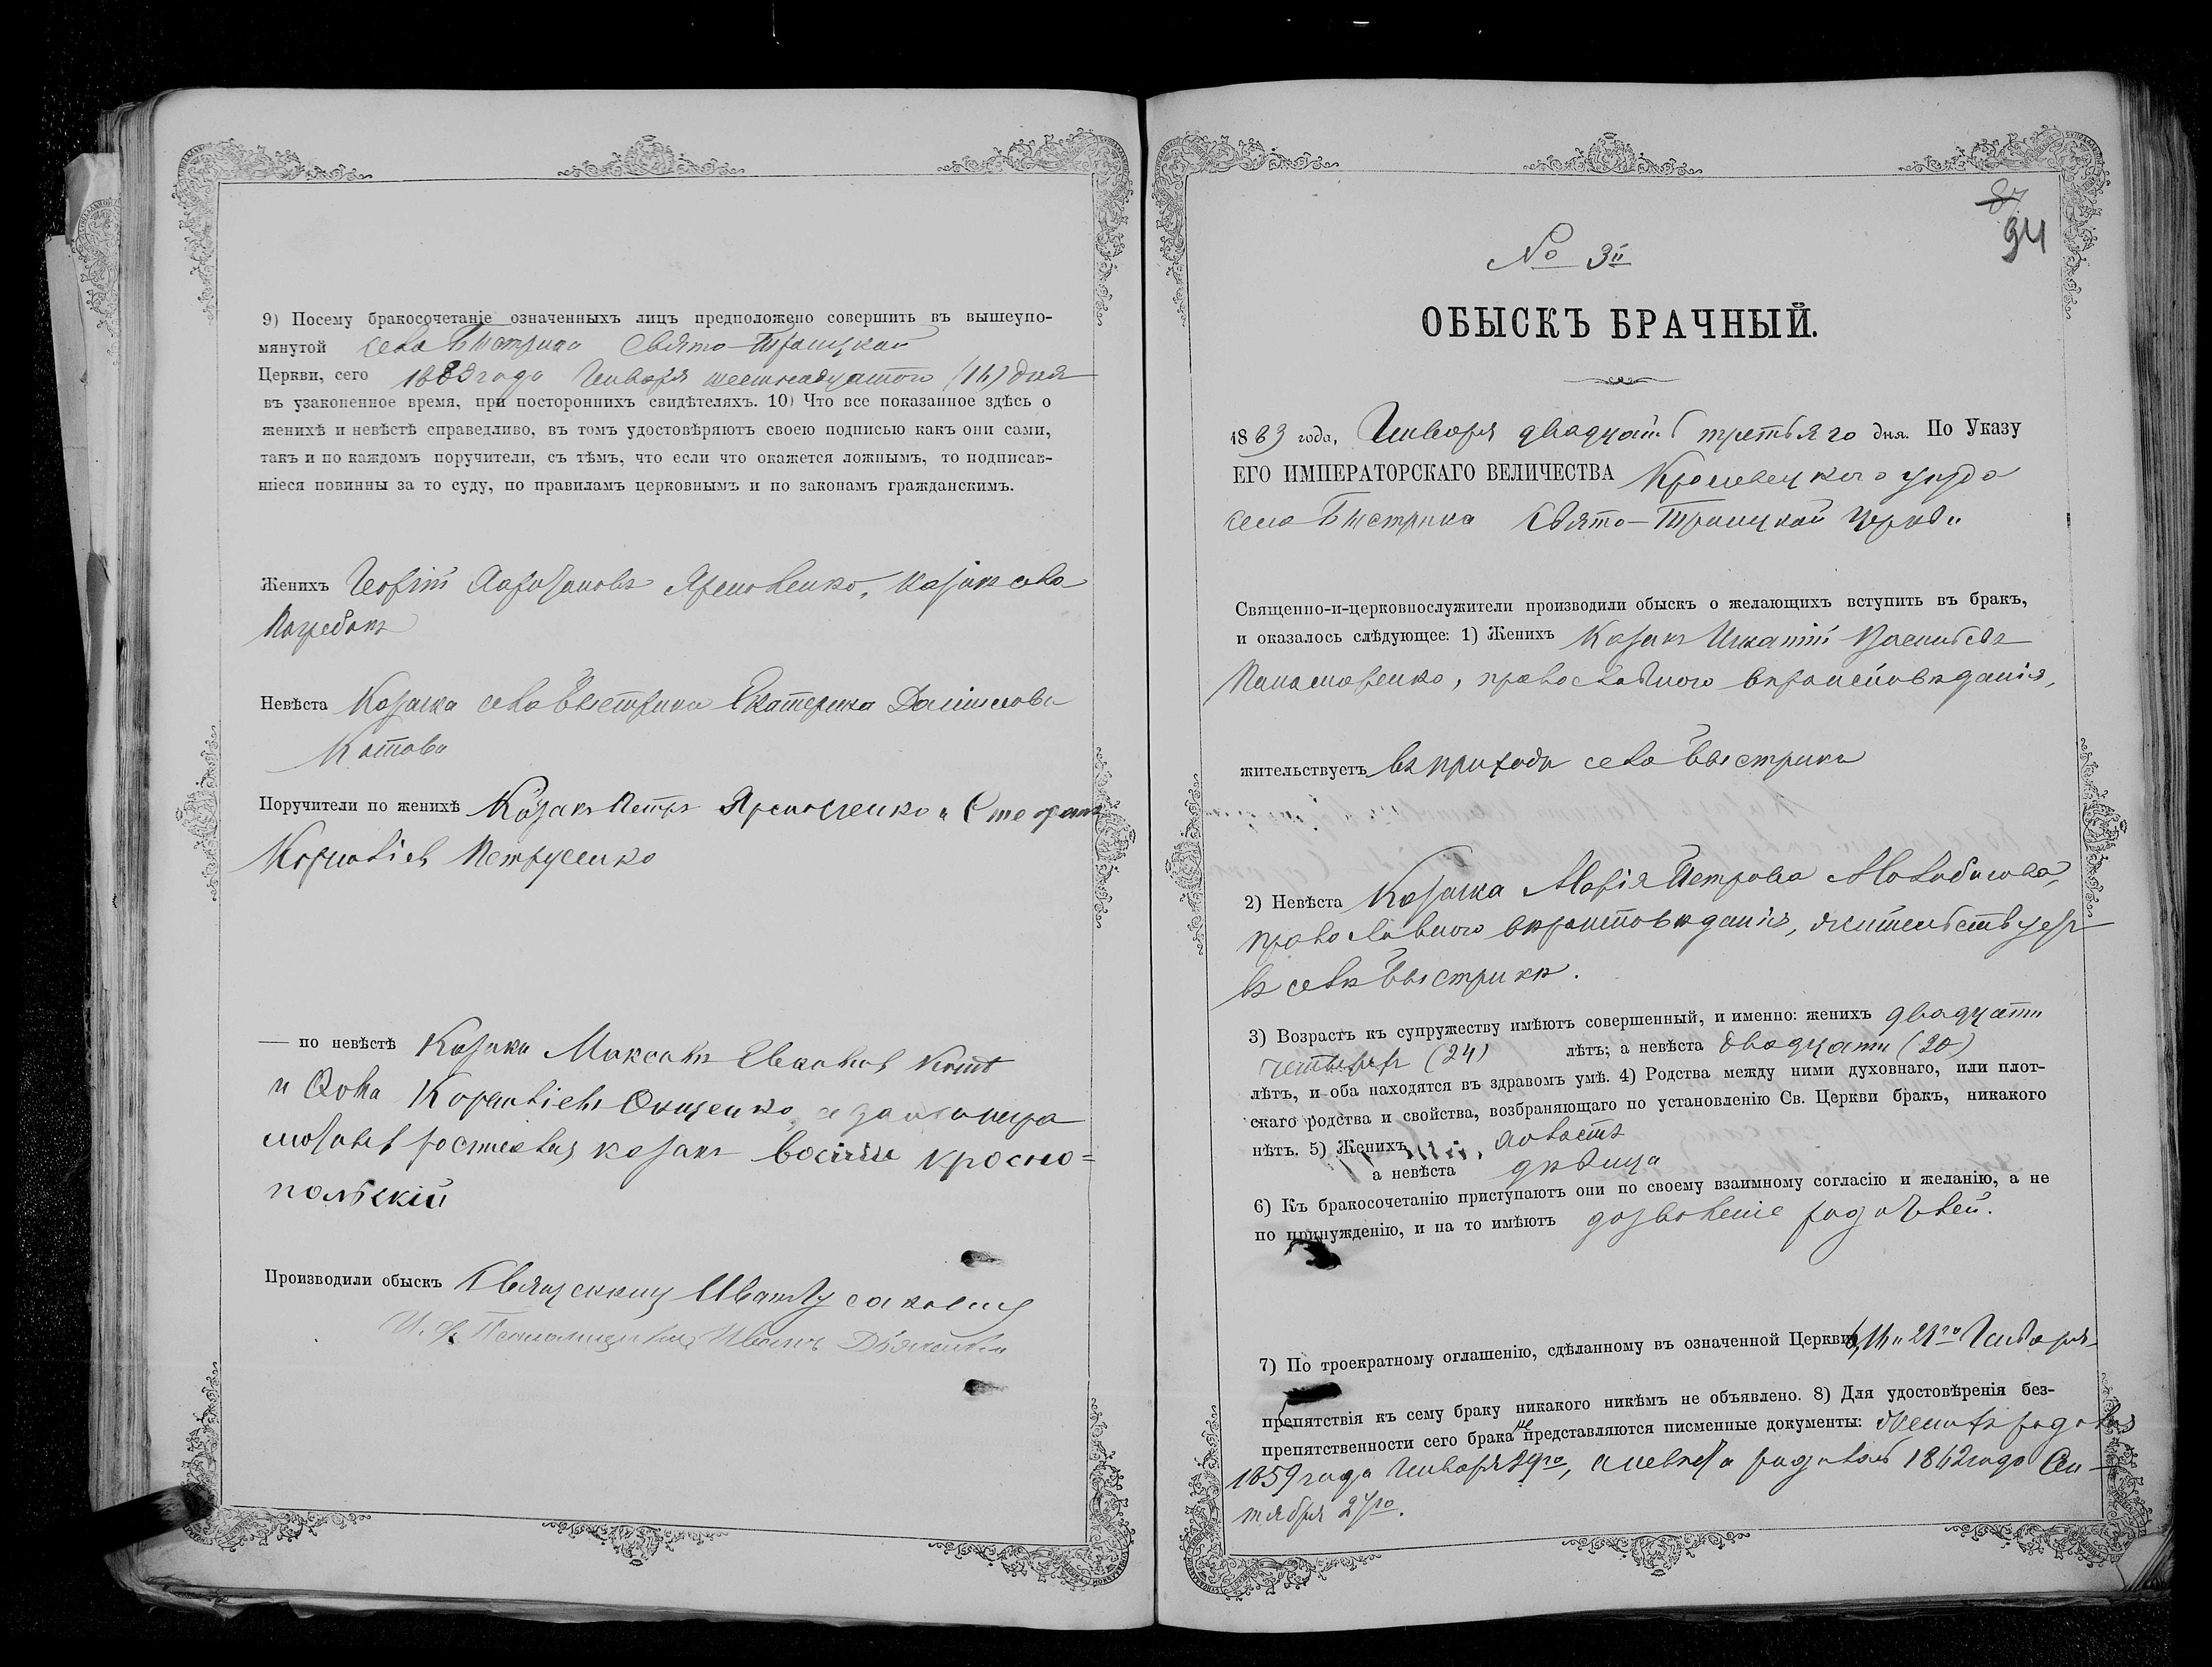 9) Посему бракосочетаніе означенныхъ лицъ предположено совершить въ вышеупо-
мянутой села Быстрика Свято-Троицкой
Церкви, сего 1883 года Января шестнадцатого (16) дня
въ узаконенное время, при постороннихъ свидѣтеляхъ. 10) Что все показанное здѣсь о
женихѣ и невѣстѣ справедливо, въ томъ удостовѣряютъ своею подписью какъ они сами,
такъ и по каждомъ поручители, съ тѣмъ, что если что окажется ложнымъ, то подписав-
шіеся повинны за то суду, по правиламъ церковнымъ и по законамъ гражданскимъ.
Женихъ Георгій Ярмоленко, козакъ села
Погребокъ
Невѣста Козачка села Быстрика Екатерина Даниилова
Котова
Поручители по женихѣ Козакъ Петръ Ярмоленко и Стефанъ
Корніевъ Петрусенко
— по невѣстѣ Козаки Максимъ
и Фома Корніевъ Онищенко, а за
козакъ красно=
польскій
Производили обыскъ Священникъ Иванъ
И. д. Псаломщика Иванъ
87
94
№ 3й
ОБЫСКЪ БРАЧНЫЙ.
1883 года, Января двадцать третьяго дня. По Указу
ЕГО ИМПЕРАТОРСКАГО ВЕЛИЧЕСТВА Кролевецкого уѣзда
села Быстрика Свято-Троицкой Церкви
Священно-и-церковнослужители производили обыскъ о желающихъ вступить въ бракъ,
и оказалось слѣдующее: 1) Женихъ Козакъ Игнатій Васильевъ
Панамаренко, православного вѣроисповѣданія,
жительствуетъ въ приходѣ села Быстрика
2) Невѣста Козачка Марія Петрова
православного вѣроисповѣданія, жительствуетъ
въ селѣ Быстрикѣ.
3) Возрастъ къ супружеству имѣютъ совершенный, и именно: женихъ двадцати
четырехъ (24) лѣтъ; а невѣста двадцати (20)
лѣтъ, и оба находятся въ здравомъ умѣ. 4) Родства между ними духовнаго, или плот-
скаго родства и свойства, возбраняющаго по установленію Св. Церкви бракъ, никакого
нѣтъ. 5) Женихъ холостъ
а невѣста дѣвица
6) Къ бракосочетанію приступаютъ они по своему взаимному согласію и желанію, а не
по принужденію, и на то имѣютъ дозволеніе родителей.
7) По троекратному оглашенію, сдѣланному въ означенной Церкви 21го Января
препятствія къ сему браку никакого никѣмъ не объявлено. 8) Для удостовѣренія без-
препятственности сего брака не представляются писменные документы: женихъ родился
1859 года Января 29го, а невѣста родилась 1862 года Ок-
тября 24го.